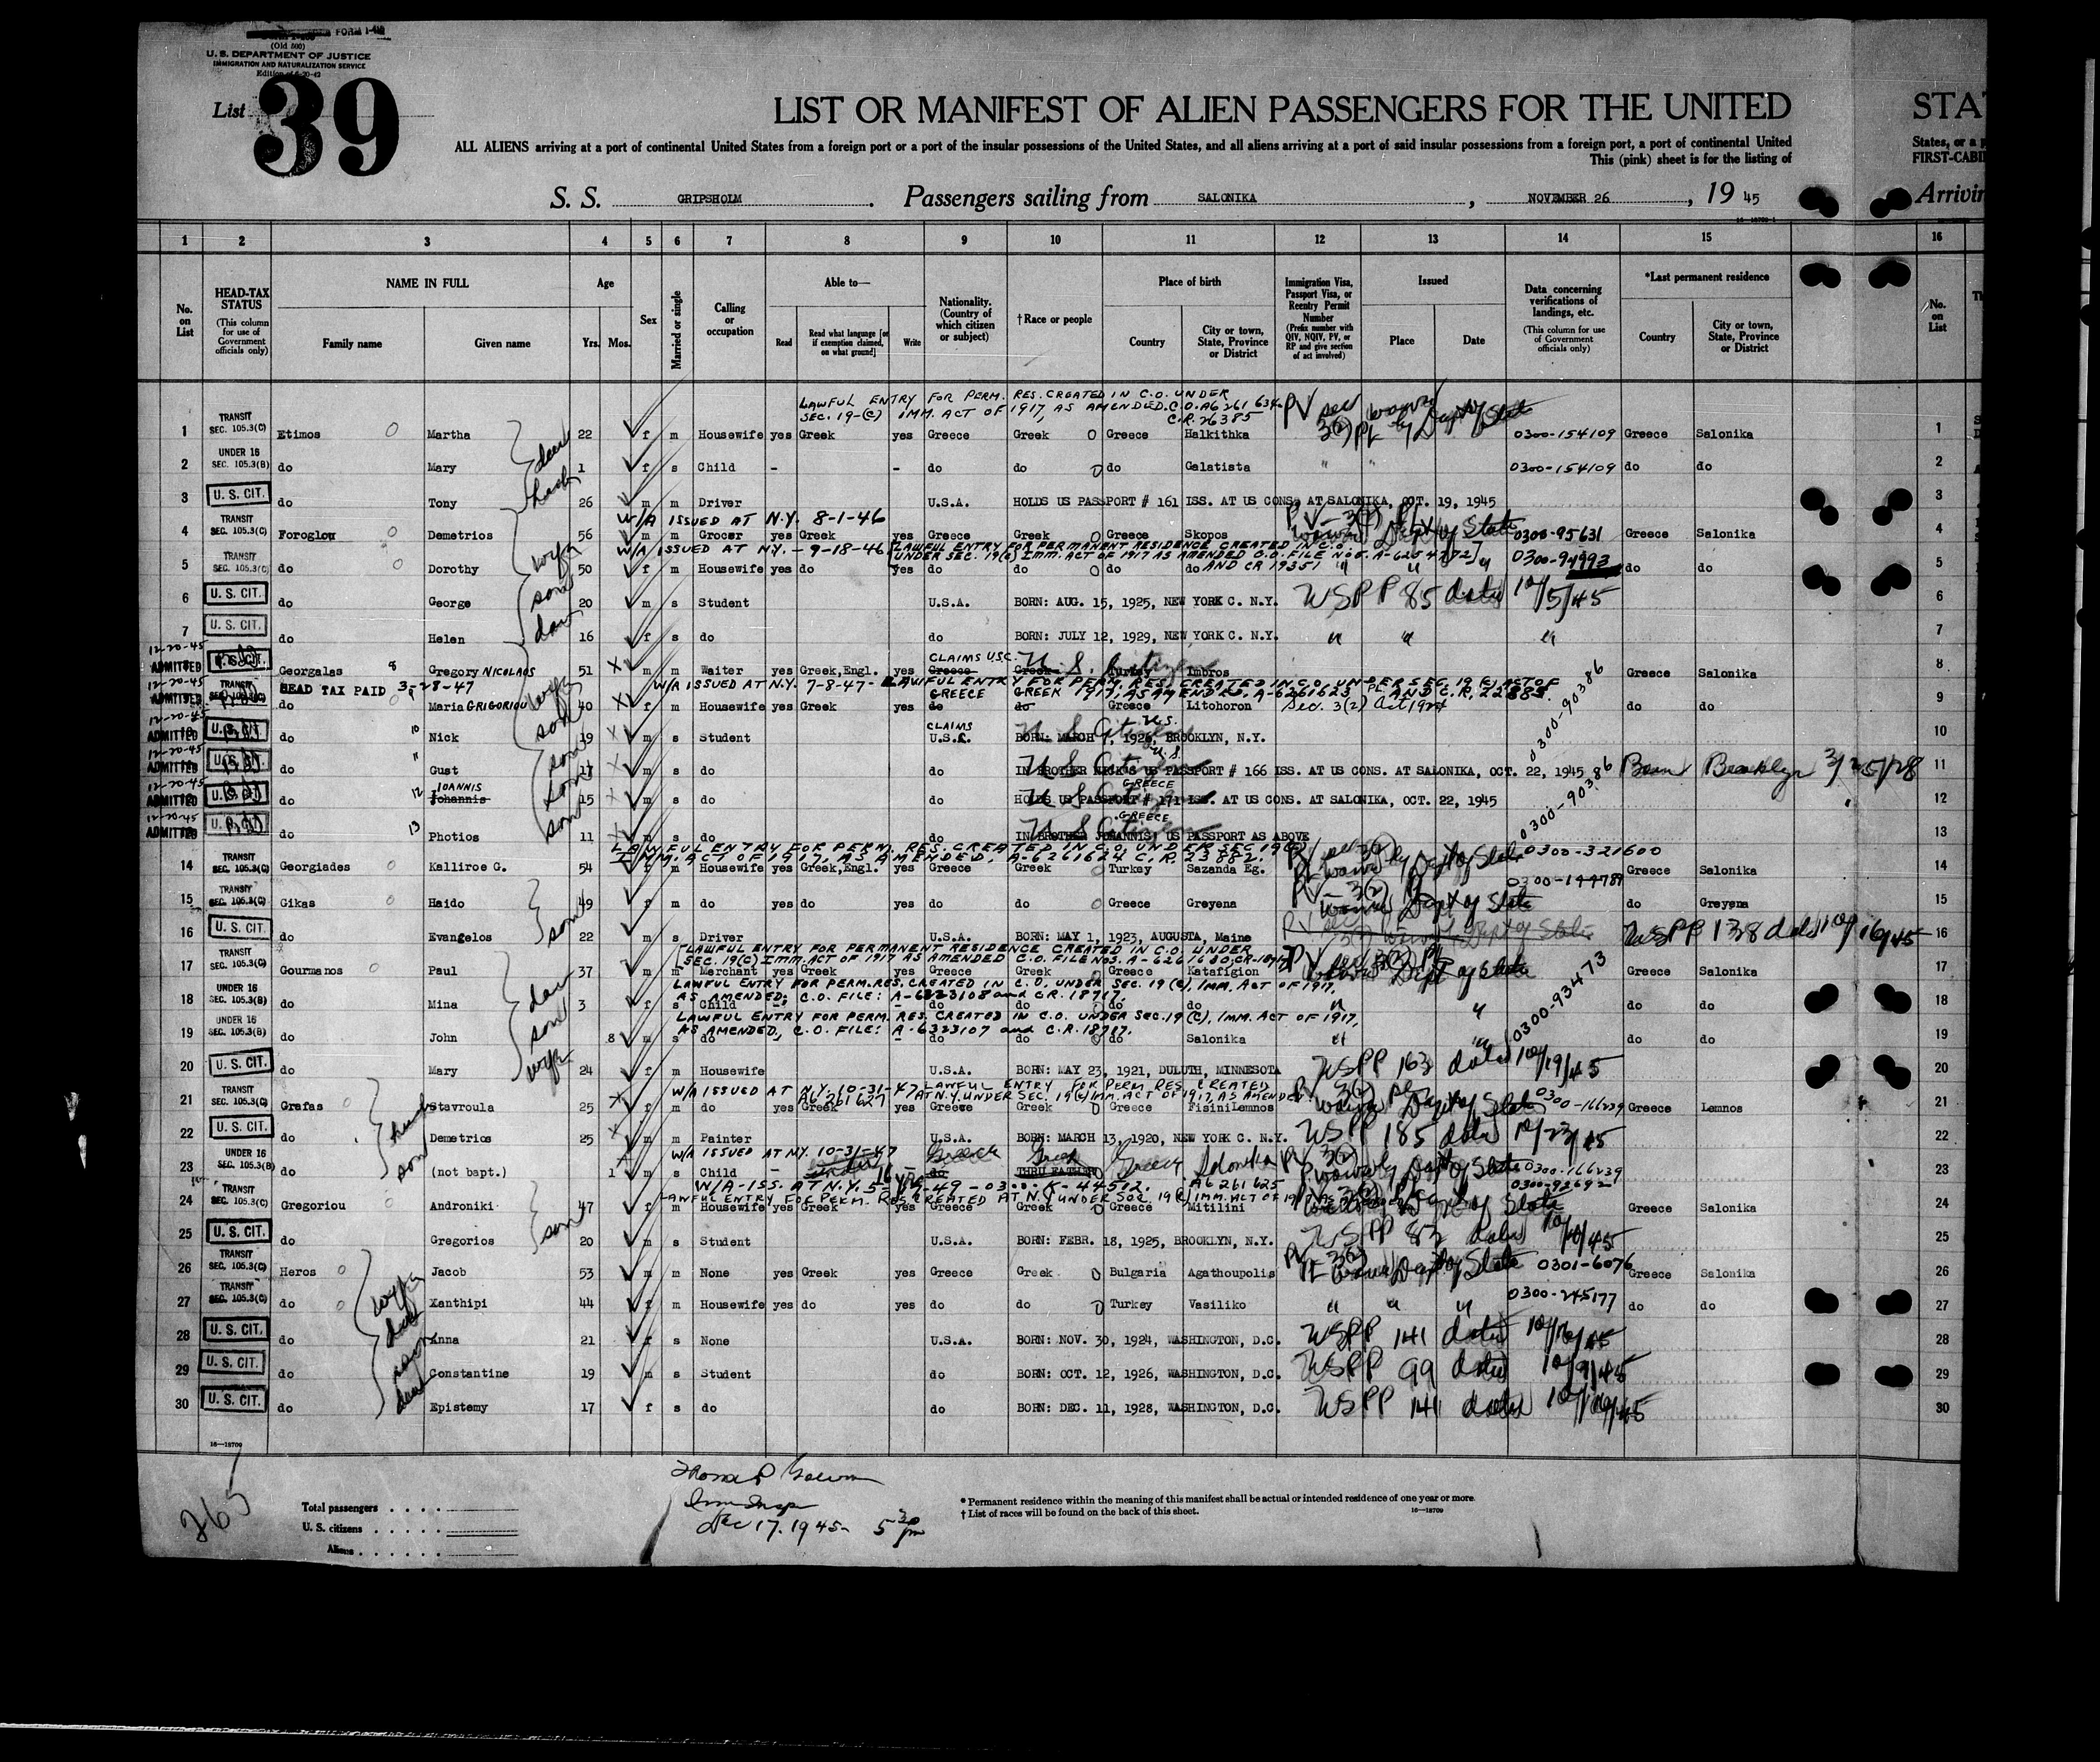 FORM I-418
(Old 500)
U. S. DEPARTMENT OF JUSTICE
IMMIGRATION AND NATURALIZATION SERVICE
List 39
LIST OR MANIFEST OF ALIEN PASSENGERS FOR THE UNITED STA
ALL ALIENS arriving at a port of continental United States from a foreign port or a port of the insular possessions of the United States, and all aliens arriving at a port of said insular possessions from a foreign port, a port of continental United States, or a
This (pink) sheet is for the listing of FIRST-CABI
S. S. GRIPSHOLM. Passengers sailing from SALONIKA, NOVEMBER 26, 19 45 Arrivin
1 2 3 4 5 6 7 8 9 10 11 12 13 14 15 16
No. on List
HEAD-TAX STATUS (This column for use of Government officials only)
NAME IN FULL Family name Given name
Age Yrs. Mos.
Sex
Married or single
Calling or occupation
Able to— Read Read what language [or if exemption claimed, on what ground] Write
Nationality. (Country of which citizen or subject)
†Race or people
Place of birth Country City or town, State, Province or District
Immigration Visa, Passport Visa, or Reentry Permit Number (Prefix number with QIV, NQIV, PV, or RP and give section of act involved)
Issued Place Date
Data concerning verifications of landings, etc. (This column for use of Government officials only)
*Last permanent residence Country City or town, State, Province or District
No. on List
LAWFUL ENTRY FOR PERM. RES. CREATED IN C.O. UNDER
SEC. 19-(C) IMM. ACT OF 1917, AS AMENDED. C.O. A6 261 634
C.R. 26385
1 TRANSIT SEC. 105.3(C) Etimos Martha 22 f m Housewife yes Greek yes Greece Greek Greece Halkithka 0300-154109 Greece Salonika 1
2 UNDER 16 SEC. 105.3(B) do Mary 1 f s Child - - do do do Galatista " " 0300-154109 do do 2
3 U. S. CIT. do Tony 26 m m Driver U.S.A. HOLDS US PASSPORT # 161 ISS. AT US CONS. AT SALONIKA, OCT. 19, 1945 3
W/A ISSUED AT N.Y. 8-1-46
4 TRANSIT SEC. 105.3(C) Foroglou Demetrios 56 m m Grocer yes Greek yes Greece Greek Greece Skopos 0300-95631 Greece Salonika 4
W/A ISSUED AT N.Y. - 9-18-46 [LAWFUL ENTRY FOR PERMANENT RESIDENCE CREATED IN C.O.
UNDER SEC. 19(C) IMM. ACT OF 1917 AS AMENDED C.O. FILE NOS. A-6254772]
AND CR 19351
5 TRANSIT SEC. 105.3(C) do Dorothy 50 f m Housewife yes do yes do do do do " " " do do 5
6 U. S. CIT. do George 20 m s Student U.S.A. BORN: AUG. 15, 1925, NEW YORK C. N.Y. USPP 85 dated 10/5/45 6
7 U. S. CIT. do Helen 16 f s do do BORN: JULY 12, 1929, NEW YORK C. N.Y. " " " 7
12-20-45 ADMITTED Georgalas Gregory NICOLAOS 51 m m Waiter yes Greek,Engl. yes CLAIMS U.S.C. Greece Greek U.S. Citizen Turkey Imbros Greece Salonika 8
HEAD TAX PAID 3-28-47
W/A ISSUED AT N.Y. 7-8-47 - LAWFUL ENTRY FOR PERM. RES. CREATED IN C.O. UNDER SEC. 19(C) ACT OF
1917, AS AMENDED, A-6261623 AND C.R. 22883.
12-20-45 ADMITTED do Maria GRIGORIOU 40 f m Housewife yes Greek yes GREECE do GREEK do Greece Litohoron Sec. 3(2) Act 1924 do do 9
12-20-45 ADMITTED do Nick 19 m s Student CLAIMS U.S.C. BORN: MARCH 7, 1926, BROOKLYN, N.Y. 0300-90386 10
12-20-45 ADMITTED do Gust 17 m s do do IN BROTHER NICK'S US PASSPORT # 166 ISS. AT US CONS. AT SALONIKA, OCT. 22, 1945 Born Brooklyn 3/25/28 11
12-20-45 ADMITTED do IOANNIS Johannis 15 m s do do GREECE HOLDS US PASSPORT # 171 ISS. AT US CONS. AT SALONIKA, OCT. 22, 1945 0300-90386 12
12-20-45 ADMITTED do Photios 11 m s do do GREECE IN BROTHER JOHANNIS' US PASSPORT AS ABOVE 13
LAWFUL ENTRY FOR PERM. RES. CREATED IN C.O. UNDER SEC 19(C)
IMM. ACT OF 1917, AS AMENDED, A-6261624 C.R. 23882.
14 TRANSIT SEC. 105.3(C) Georgiades Kalliroe G. 54 f m Housewife yes Greek,Engl. yes Greece Greek Turkey Sazanda Eg. 0300-321600 Greece Salonika 14
15 TRANSIT SEC. 105.3(C) Gikas Haido 49 f m do yes do yes do do Greece Greyena do Greyena 15
16 U. S. CIT. do Evangelos 22 m s Driver U.S.A. BORN: MAY 1, 1923, AUGUSTA, Maine USPP 138 dated 10/16/45 16
[LAWFUL ENTRY FOR PERMANENT RESIDENCE CREATED IN C.O. UNDER
SEC. 19(C) IMM. ACT OF 1917 AS AMENDED C.O. FILE NOS. A-6261680, CR-18717]
17 TRANSIT SEC. 105.3(C) Gourmanos Paul 37 m m Merchant yes Greek yes Greece Greek Greece Katafigion Greece Salonika 17
LAWFUL ENTRY FOR PERM. RES. CREATED IN C.O. UNDER SEC. 19(C), IMM. ACT OF 1917,
AS AMENDED; C.O. FILE: A-6323108 and CR. 18717.
18 UNDER 16 SEC. 105.3(B) do Mina 3 f s Child - - do do do do " " do do 18
LAWFUL ENTRY FOR PERM. RES. CREATED IN C.O. UNDER SEC. 19(C), IMM. ACT OF 1917,
AS AMENDED, C.O. FILE: A-6323107 and C.R. 18717.
19 UNDER 16 SEC. 105.3(B) do John 8 m s do - - do do do Salonika " " 0300-93473 do do 19
20 U. S. CIT. do Mary 24 f m Housewife U.S.A. BORN: MAY 23, 1921, DULUTH, MINNESOTA USPP 163 dated 10/19/45 20
W/A ISSUED AT N.Y. 10-31-47 LAWFUL ENTRY FOR PERM RES. CREATED
A6261627 AT N.Y. UNDER SEC. 19(C) IMM. ACT OF 1917, AS AMENDED
21 TRANSIT SEC. 105.3(C) Grafas Stavroula 25 f m do yes Greek yes Greece Greek Greece FisiniLemnos 0300-166239 Greece Lemnos 21
22 U. S. CIT. do Demetrios 25 m m Painter U.S.A. BORN: MARCH 13, 1920, NEW YORK C. N.Y. USPP 185 dated 10/23/45 22
W/A ISSUED AT NY. 10-31-47
23 UNDER 16 SEC. 105.3(B) do (not bapt.) 1 m s Child - - do Greece THRU FATHER Greek Greece Salonika 0300-166239 23
W/A-ISS. AT N.Y. A6261625
LAWFUL ENTRY FOR PERM. RES. CREATED AT N.Y. UNDER SEC. 19(C) IMM. ACT OF
24 TRANSIT SEC. 105.3(C) Gregoriou Androniki 47 f m Housewife yes Greek yes Greece Greek Greece Mitilini Greece Salonika 24
25 U. S. CIT. do Gregorios 20 m s Student U.S.A. BORN: FEBR. 18, 1925, BROOKLYN, N.Y. 25
26 TRANSIT SEC. 105.3(C) Heros Jacob 53 m m None yes Greek yes Greece Greek Bulgaria Agathoupolis 0301-6076 Greece Salonika 26
27 TRANSIT SEC. 105.3(C) do Xanthipi 44 f m Housewife yes do yes do do Turkey Vasiliko " " " 0300-245177 do do 27
28 U. S. CIT. do Anna 21 f s None U.S.A. BORN: NOV. 30, 1924, WASHINGTON, D.C. USPP 141 dated 10/16/45 28
29 U. S. CIT. do Constantine 19 m s Student do BORN: OCT. 12, 1926, WASHINGTON, D.C. USPP 99 dated 10/9/45 29
30 U. S. CIT. do Epistemy 17 f s do do BORN: DEC. 11, 1928, WASHINGTON, D.C. USPP 141 dated 10/16/45 30
16—18700
265
Total passengers
U. S. citizens
Aliens
Dec 17. 1945- 5 30 pm
* Permanent residence within the meaning of this manifest shall be actual or intended residence of one year or more.
† List of races will be found on the back of this sheet. 16—18700